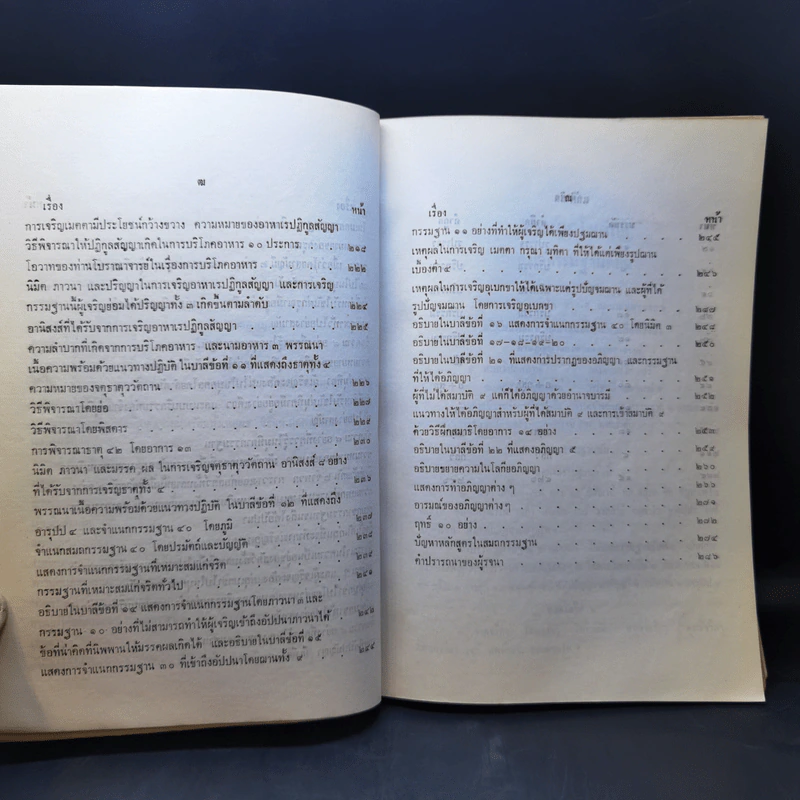 ฒ
เรื่อง หน้า
การเจริญเมตตามีประโยชน์กว้างขวาง ความหมายของอาหาเรปฏิกูลสัญญา
วิธีพิจารณาให้ปฏิกูลสัญญาเกิดในการบริโภคอาหาร ๑๐ ประการ ๒๑๘
โอวาทของท่านโบราณาจารย์ในเรื่องการบริโภคอาหาร ๒๒๒
นิมิต ภาวนา และปริญญาในการเจริญอาหาเรปฏิกูลสัญญา และการเจริญ
กรรมฐานนี้ผู้เจริญย่อมได้ปริญญาทั้ง ๓ เกิดขึ้นตามลำดับ ๒๒๔
อานิสงส์ที่ได้รับจากการเจริญอาหาเรปฏิกูลสัญญา ๒๒๕
ความลำบากที่เกิดจากการบริโภคอาหาร และนามอาหาร ๓ พรรณนา
เนื้อความพร้อมด้วยแนวทางปฏิบัติ ในบาลีข้อที่ ๑๑ ที่แสดงถึงธาตุทั้ง ๔
ความหมายของจตุธาตุววัตถาน ๒๒๖
วิธีพิจารณาโดยย่อ ๒๒๗
วิธีพิจารณาโดยพิสดาร ๒๒๘
การพิจารณาธาตุ ๔๒ โดยอาการ ๑๓ ๒๓๐
นิมิต ภาวนา และมรรค ผล ในการเจริญจตุธาตุววัตถาน อานิสงส์ ๘ อย่าง
ที่ได้รับจากการเจริญธาตุทั้ง ๔ ๒๓๖
พรรณนาเนื้อความพร้อมด้วยแนวทางปฏิบัติ ในบาลีข้อที่ ๑๒ ที่แสดงถึง
อารุปป ๔ และจำแนกกรรมฐาน ๔๐ โดยภูมิ ๒๓๗
จำแนกสมถกรรมฐาน ๔๐ โดยปรมัตถ์และบัญญัติ ๒๓๘
แสดงการจำแนกกรรมฐานที่เหมาะสมแก่จริต
กรรมฐานที่เหมาะสมแก่จริตทั่วไป ๒๔๑
อธิบายในบาลีข้อที่ ๑๔ แสดงการจำแนกกรรมฐานโดยภาวนา ๓ และ
กรรมฐาน ๑๐ อย่างที่ไม่สามารถทำให้ผู้เจริญเข้าถึงอัปปนาภาวนาได้ ๒๔๒
ข้อที่น่าคิดที่นิพพานให้มรรคผลเกิดได้ และอธิบายในบาลีข้อที่ ๑๕
แสดงการจำแนกกรรมฐาน ๓๐ ที่เข้าถึงอัปปนาโดยฌานทั้ง ๙ ๒๔๔
เรื่อง หน้า
กรรมฐาน ๑๑ อย่างที่ทำให้ผู้เจริญได้เพียงปฐมฌาน ๒๔๕
เหตุผลในการเจริญ เมตตา กรุณา มุทิตา ที่ให้ได้แต่เพียงรูปฌาน
เบื้องต่ำ ๔ ๒๔๖
เหตุผลในการเจริญอุเบกขาให้ได้เฉพาะแต่รูปปัญจมฌาน และผู้ที่ได้
รูปปัญจมฌาน โดยการเจริญอุเบกขา ๒๔๗
อธิบายในบาลีข้อที่ ๑๖ แสดงการจำแนกกรรมฐาน ๔๐ โดยนิมิต ๓ ๒๔๘
อธิบายในบาลีข้อที่ ๑๗-๑๘-๑๙-๒๐ ๒๕๐
อธิบายในบาลีข้อที่ ๒๑ ที่แสดงการปรากฏของอภิญญา และกรรมฐาน
ที่ให้ได้อภิญญา ๒๕๑
ผู้ที่ไม่ได้สมาบัติ ๙ แต่ก็ได้อภิญญาด้วยอำนาจบารมี ๒๕๒
แนวทางให้ได้อภิญญาสำหรับผู้ที่ได้สมาบัติ ๙ และการเข้าสมาบัติ ๙
ด้วยวิธีฝึกสมาธิโดยอาการ ๑๔ อย่าง ๒๕๓
อธิบายในบาลีข้อที่ ๒๒ ที่แสดงอภิญญา ๕ ๒๕๙
อธิบายขยายความในโลกียอภิญญา ๒๖๐
แสดงการทำอภิญญาต่าง ๆ ๒๖๖
อารมณ์ของอภิญญาต่าง ๆ ๒๗๑
ฤทธิ์ ๑๐ อย่าง ๒๗๒
ปัญหาหลักสูตรในสมถกรรมฐาน ๒๗๔
คำปรารถนาของผู้รจนา ๒๘๖